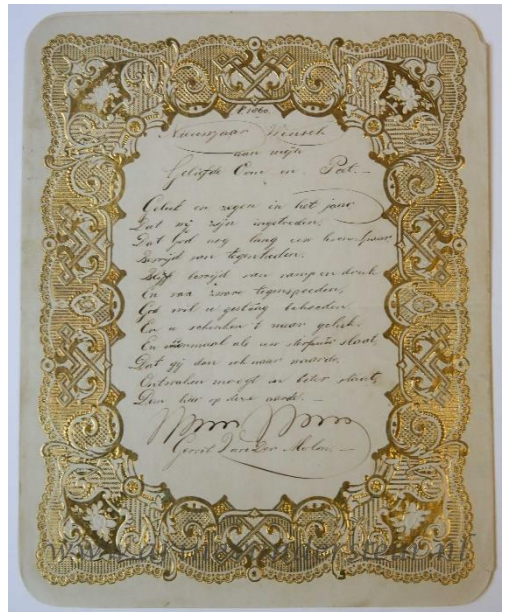 1860.
Nieuwjaar Wensch
aan mijn
Geliefde Oom en Peet. —
Geluk en zegen in het jaar
Dat wij zijn ingetreden,
Dat God nog lang uw leven spaar
Bevrijd van tegenheden.
Blijf bevrijd van ramp en druk
En van zware tegenspoeden,
God wil u gestadig behoeden
En u schenken 't waar geluk.
En eenmaal als uw sterfuur slaat,
Dat gij dan ook naar waarde,
Ontwaken moogt in beter staat,
Dan hier op deze aarde. —
Gerrit van der Molen. —